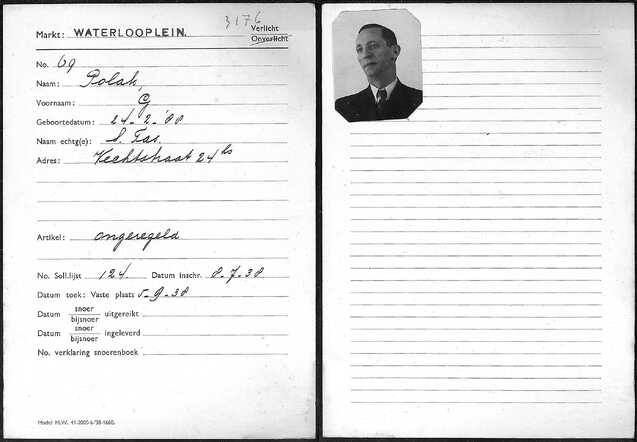 3176
Markt: WATERLOOPLEIN.
Verlicht
Onverlicht
No. 69
Naam: Polak,
Voornaam: G
Geboortedatum: 24-2-'88
Naam echtg(e): S. Tas.
Adres: Vechtstraat 24 hs
Artikel: ongeregeld
No. Soll.lijst 124. Datum inschr. 8-7-38
Datum toek: Vaste plaats 5-9-38
Datum snoer bijsnoer uitgereikt
Datum snoer bijsnoer ingeleverd
No. verklaring snoerenboek
Model M.W. 41-2000-6-'38-1660.